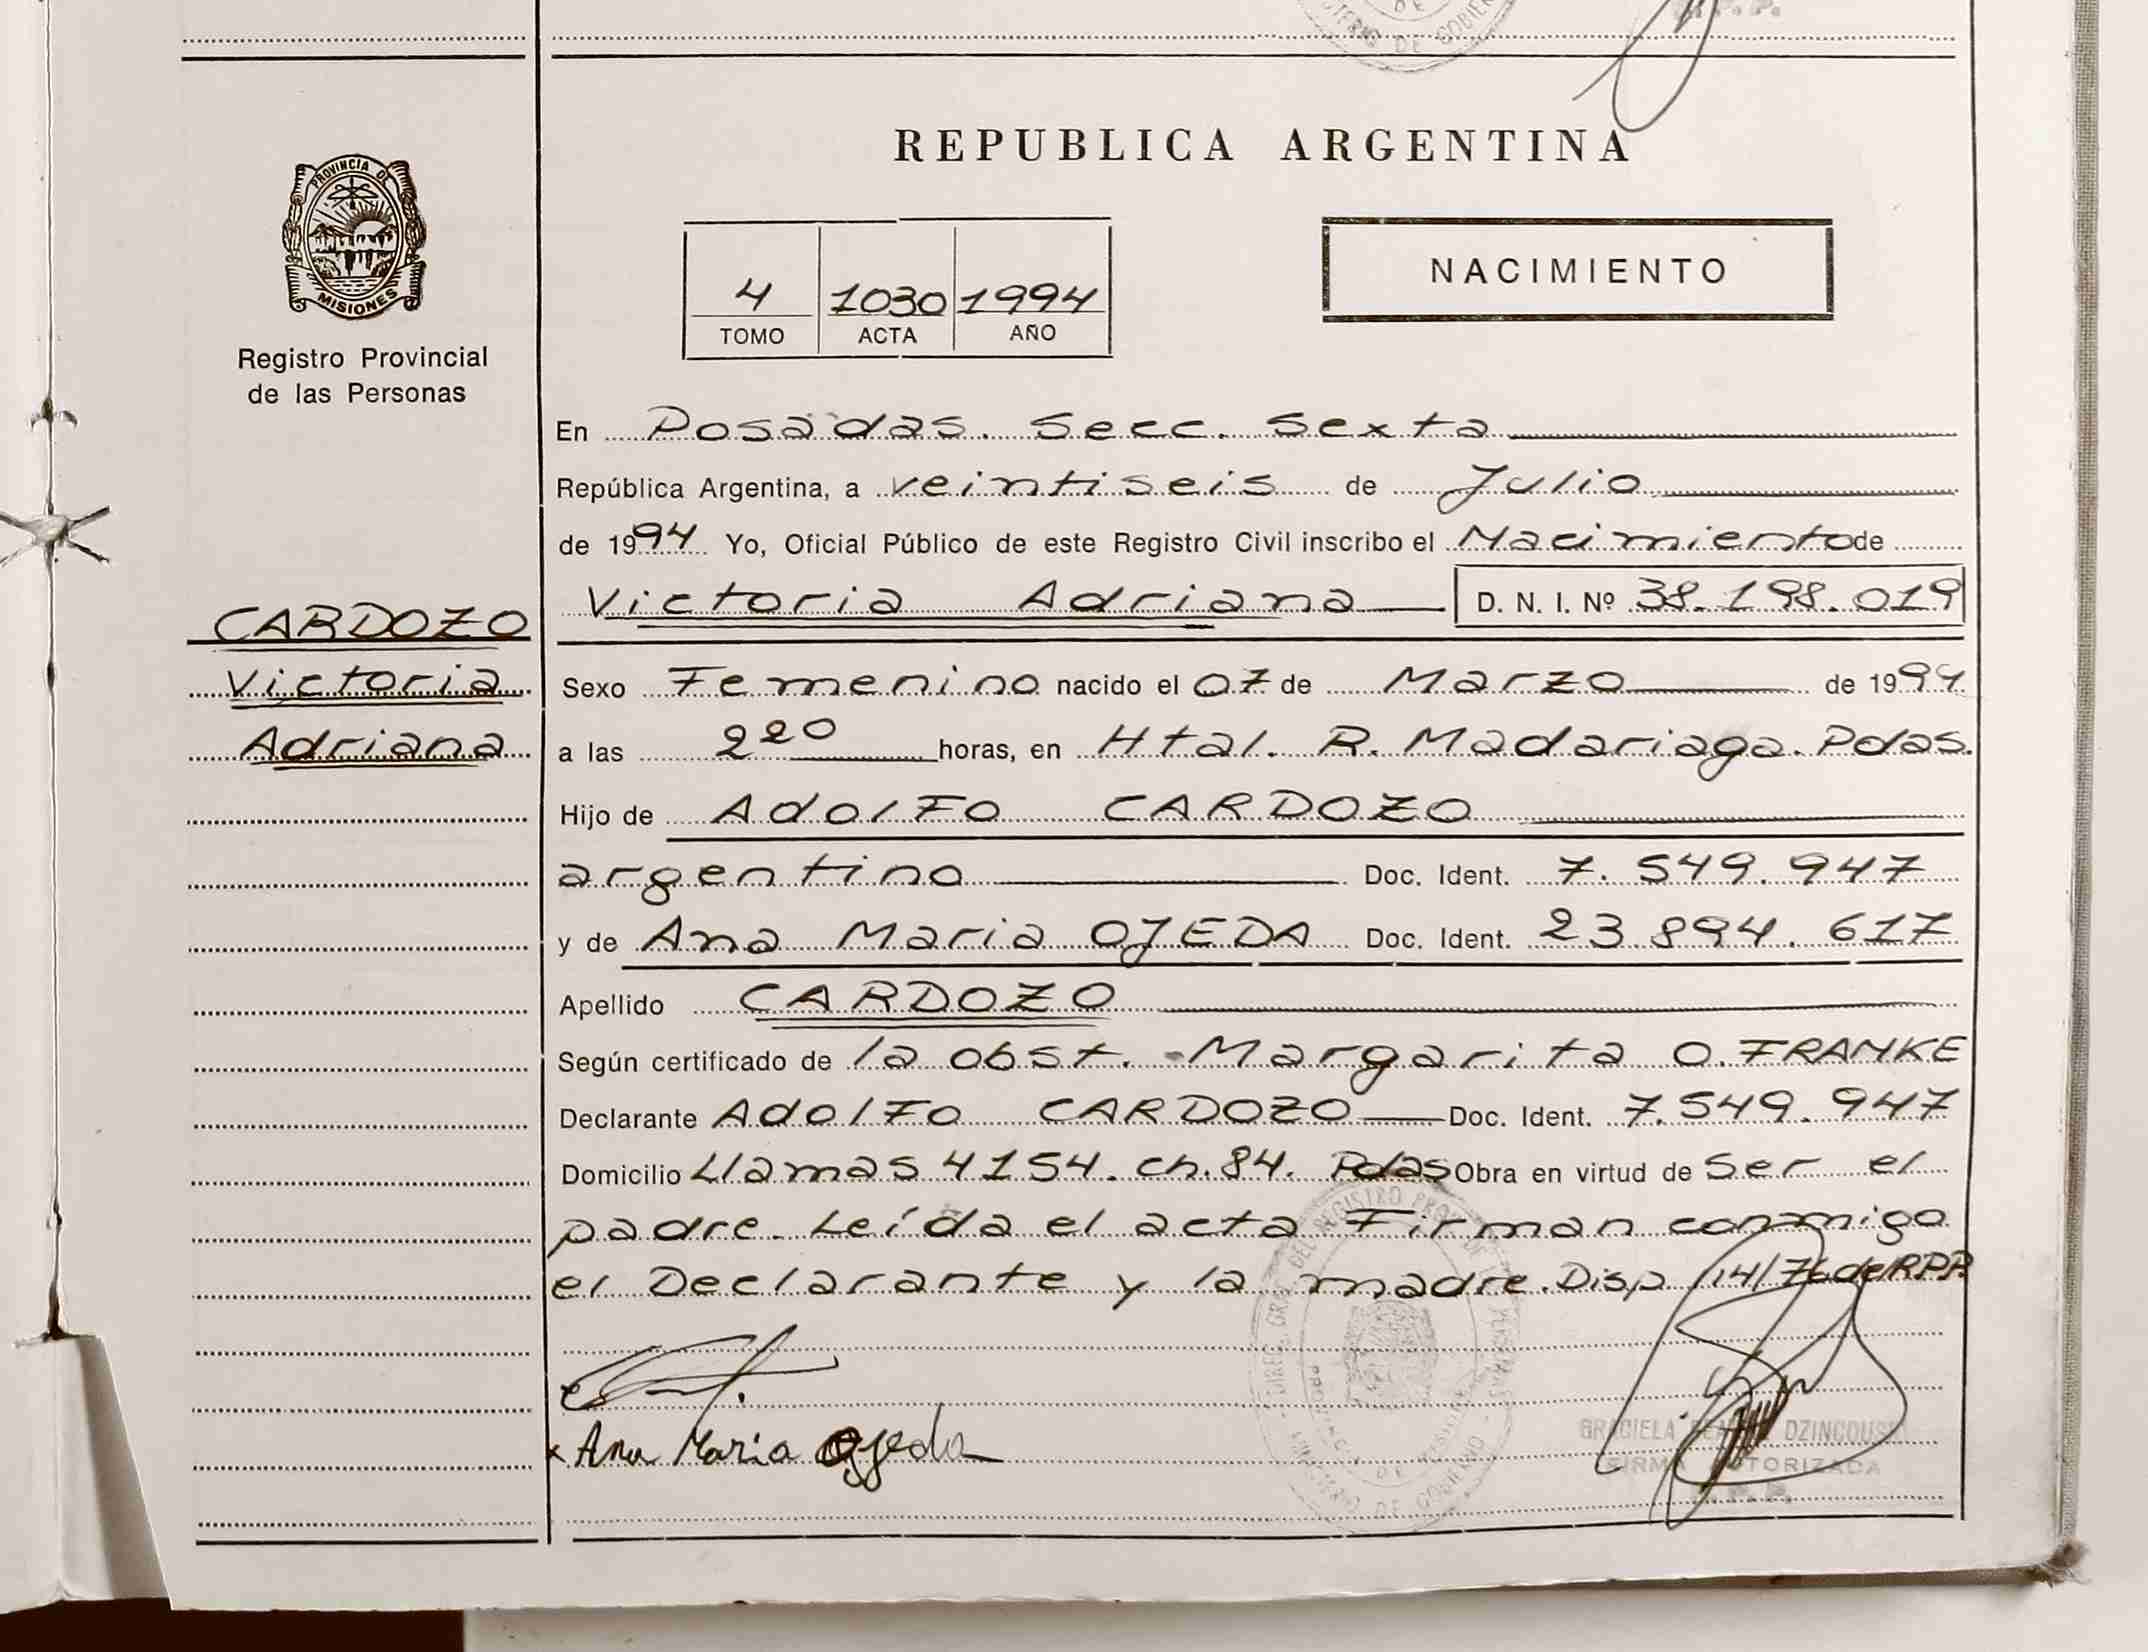 DE
TERIO DE GOBIER
REPUBLICA ARGENTINA
PROVINCIA DE
MISIONES
Registro Provincial
de las Personas
4 1030 1994
TOMO ACTA AÑO
NACIMIENTO
En Posadas. Secc. Sexta
República Argentina, a veintiseis de Julio
de 1994 Yo, Oficial Público de este Registro Civil inscribo el Nacimiento de
Victoria Adriana D. N. I. Nº 38.198.019
CARDOZO
Victoria
Adriana
Sexo Femenino nacido el 07 de Marzo de 1994
a las 220 horas, en Htal. R. Madariaga. Pdas.
Hijo de Adolfo CARDOZO
argentino Doc. Ident. 7.549.947
y de Ana Maria OJEDA Doc. Ident. 23.894.617
Apellido CARDOZO
Según certificado de la obst. Margarita O. FRANKE
Declarante Adolfo CARDOZO Doc. Ident. 7.549.947
Domicilio Llamas 4154. Ch. 84. Pdas Obra en virtud de Ser el
padre. Leída el acta Firman conmigo
el Declarante y la madre. Disp. 14/76 de RPP.
x Ana Maria Ojeda
DIREC. GRAL. DEL REGISTRO PROV. DE
MINISTERIO DE GOBIERNO
GRACIELA
FIRMA AUTORIZADA